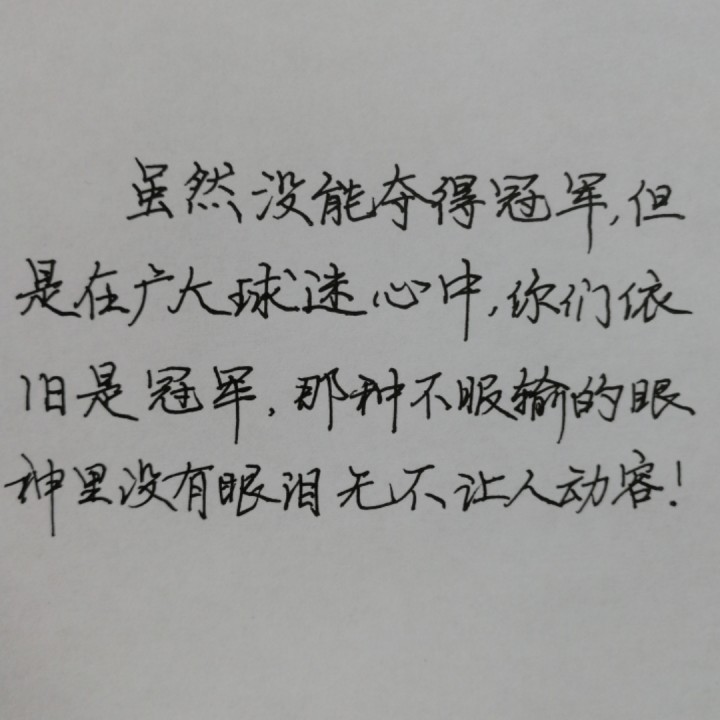 虽然没能夺得冠军,但
是在广大球迷心中,你们依
旧是冠军,那种不服输的眼
神里没有眼泪无不让人动容!